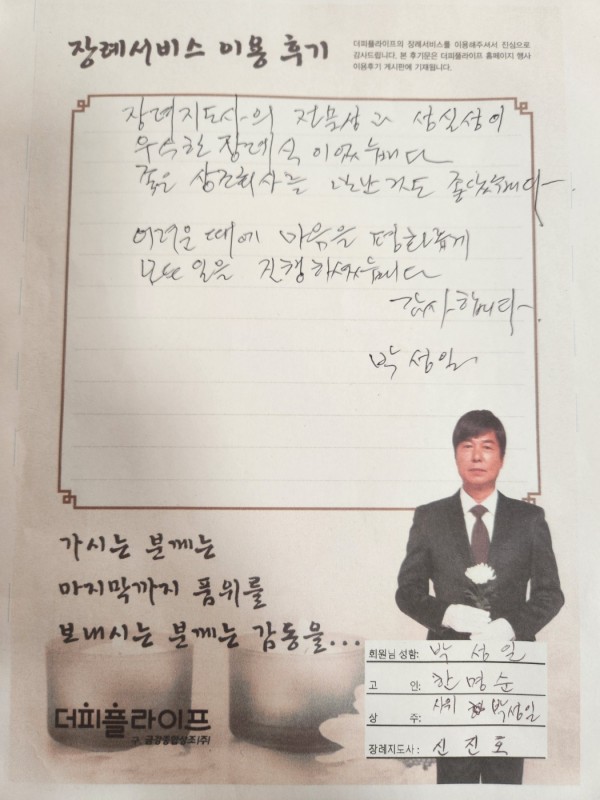 장례서비스 이용 후기
더피플라이프의 장례서비스를 이용해주셔서 진심으로
감사드립니다. 본 후기문은 더피플라이프 홈페이지 행사
이용후기 게시판에 기재됩니다.
장례지도사의 전문성과 성실성이
우수한 장례식이었습니다
좋은 상조회사를 만난것도 좋았습니다.
어려운 때에 마음을 평화롭게
모든 일을 진행하였습니다
감사합니다.
박성일
가시는 분께는
마지막까지 품위를
보내시는 분께는 감동을...
더피플라이프
구. 금강종합상조(주)
회원님 성함: 박성일
고 인: 한명순
상 주: 사위 박성일
장례지도사: 신진호